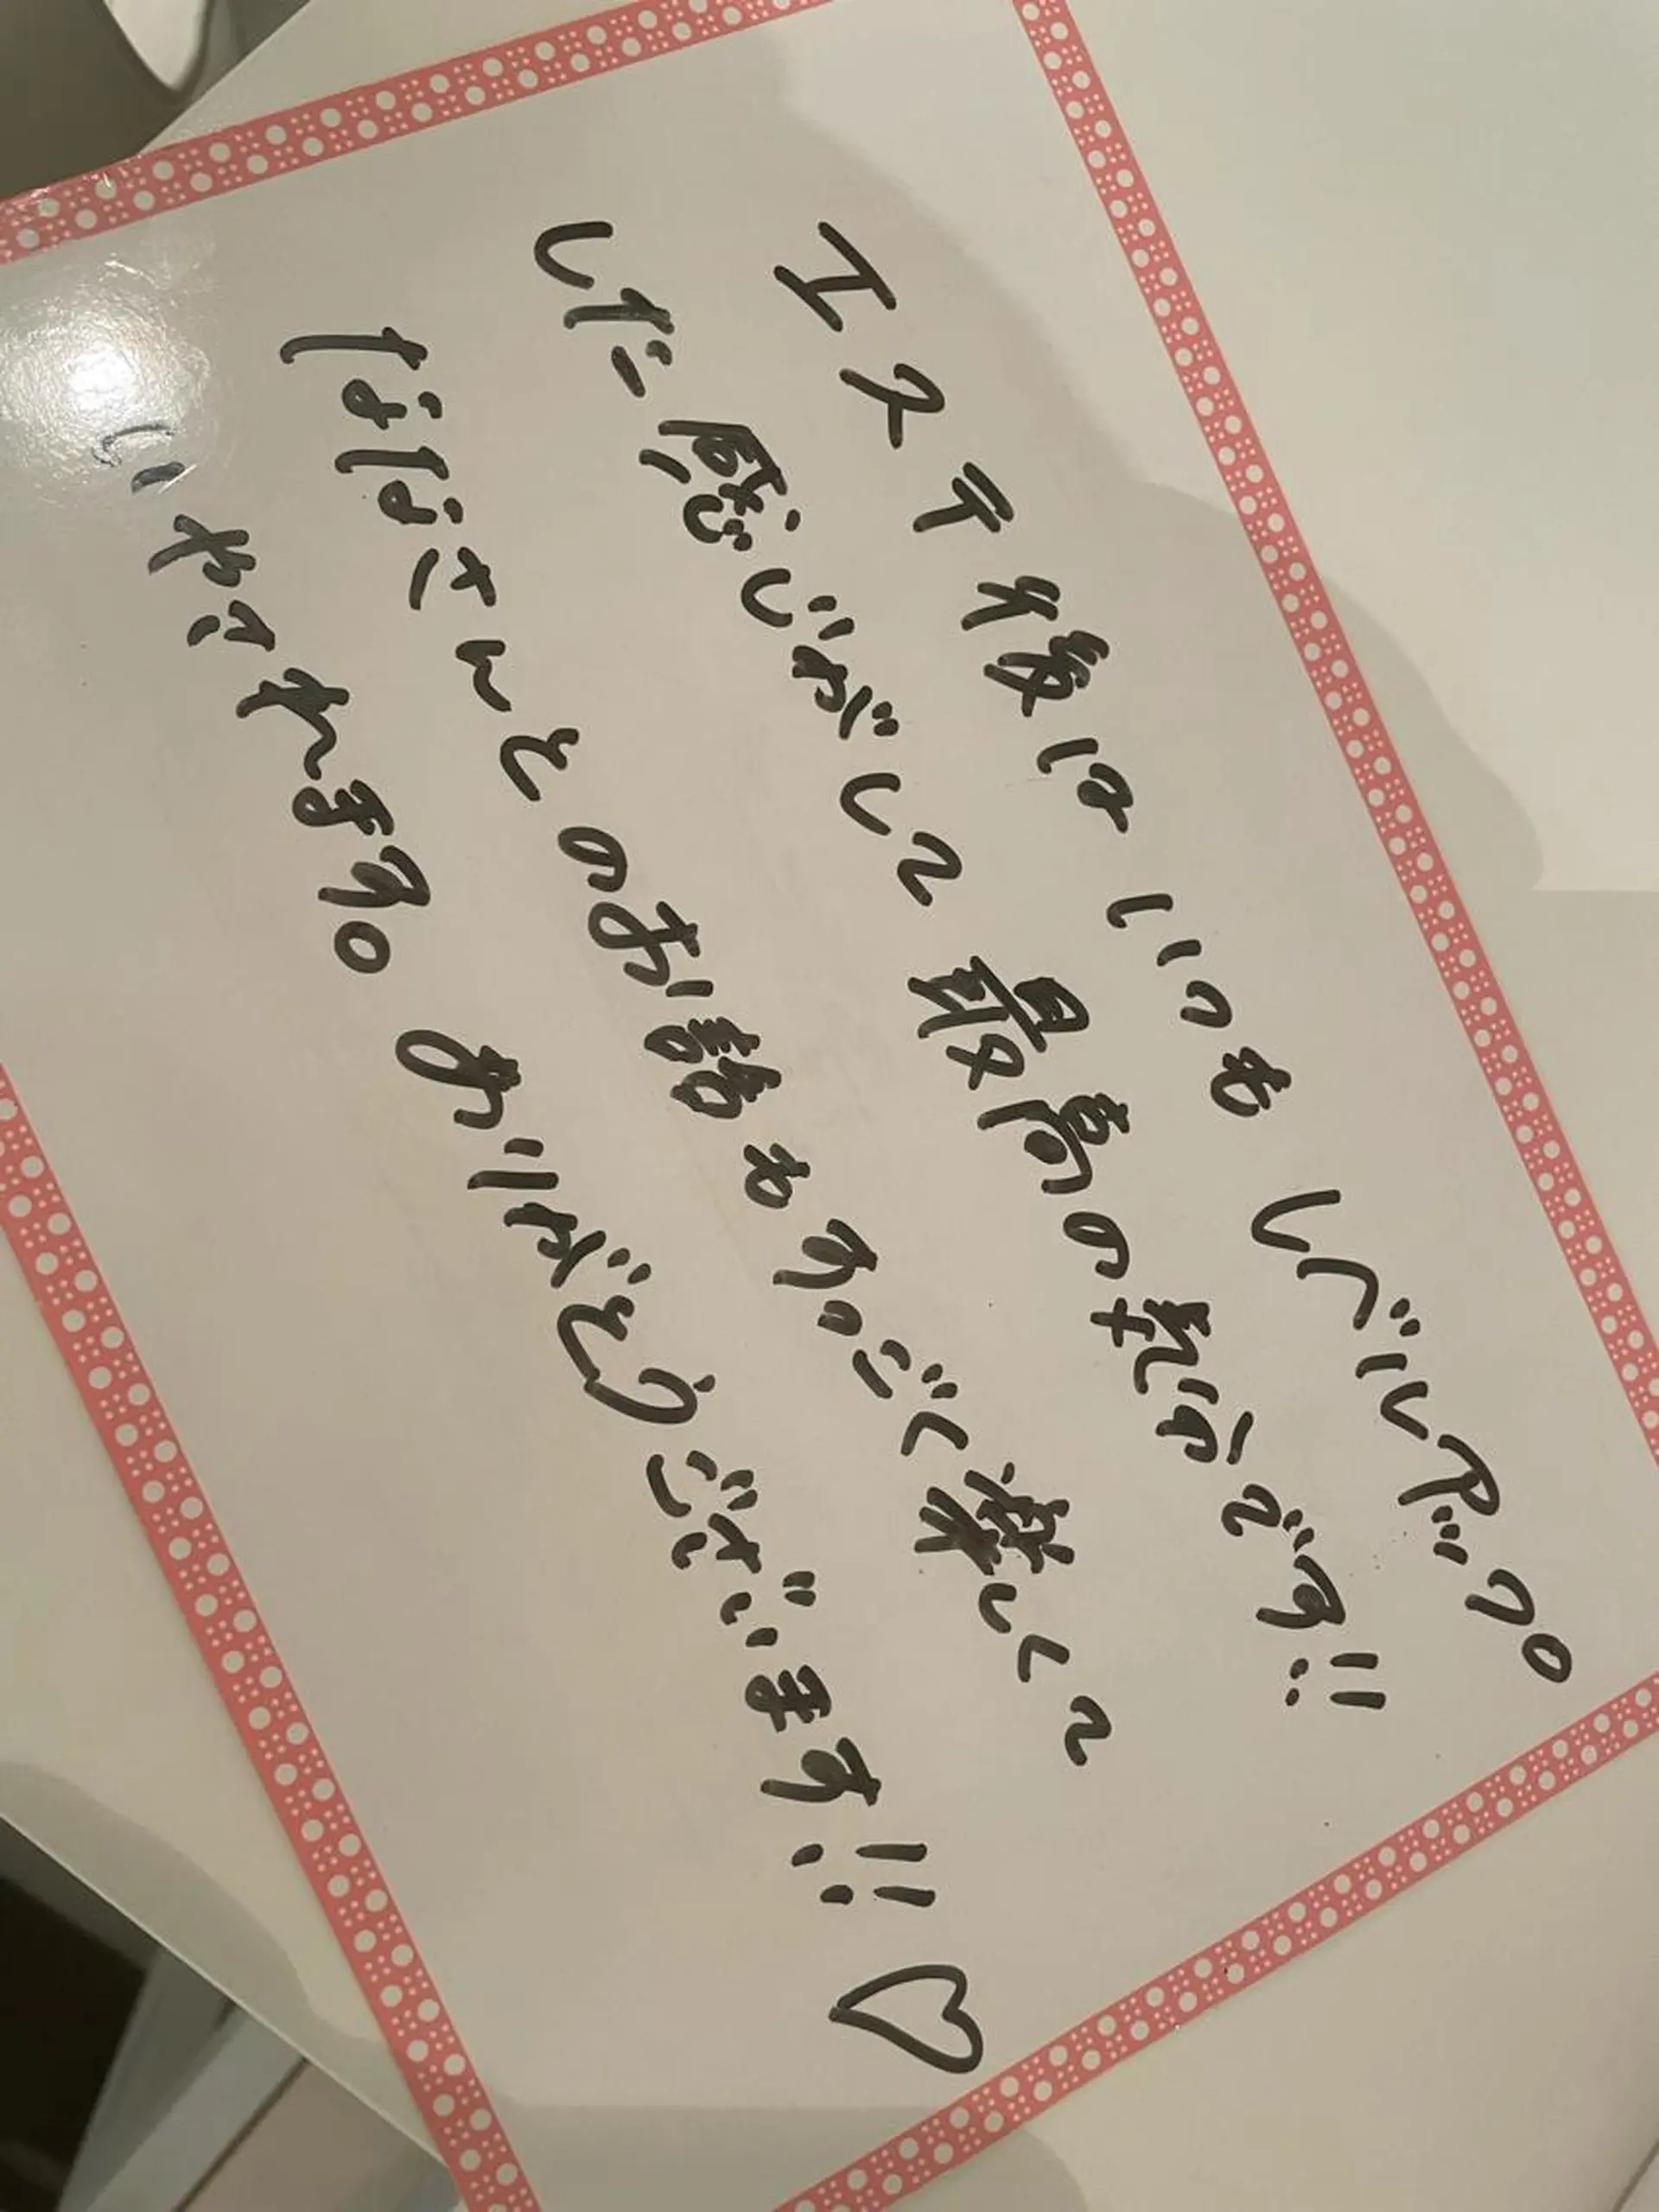 エステ後はいつもレベルアップ
した感じがして最高の気分です!!
ななさんとのお話もすっごく楽しくて
いやされます。ありがとうございます!!♡